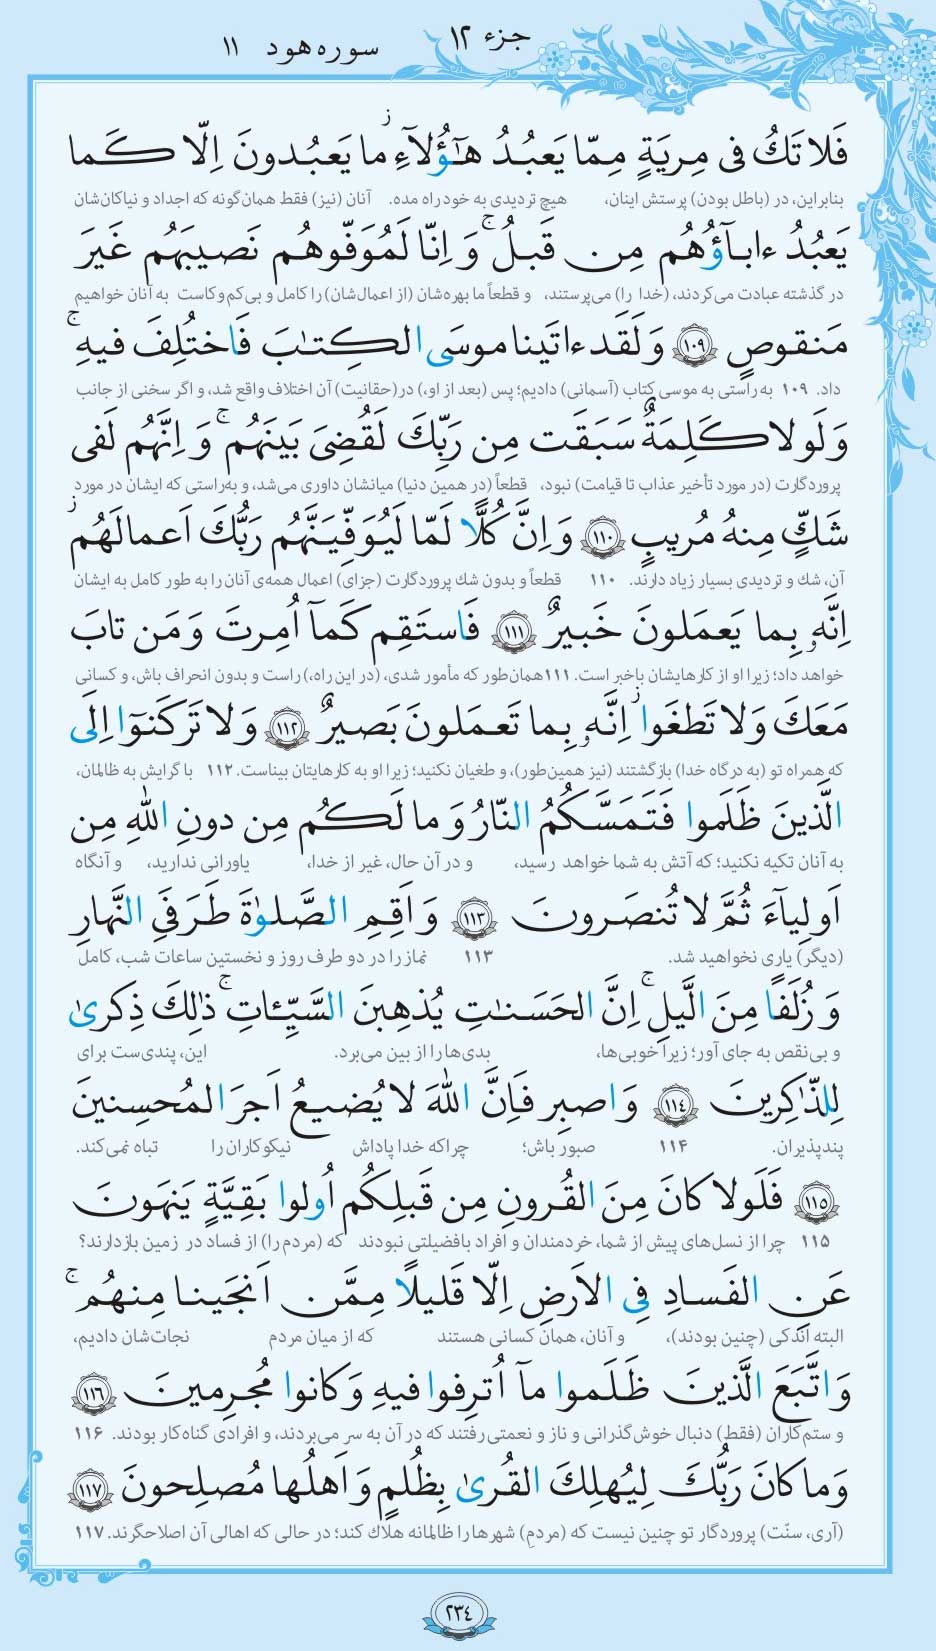 جزء ۱۲
سوره هود ۱۱
فَلا تَكُ فی مِریَةٍ مِمّا یَعبُدُ هٰٓؤُلآءِ ۚ ما یَعبُدونَ اِلّا كَما
بنابراین، در (باطل بودن) پرستش اینان، هیچ تردیدی به خود راه مده. آنان (نیز) فقط همان‌گونه که اجداد و نیاکان‌شان
یَعبُدُ ءابآؤُهُم مِن قَبلُ ۚ وَ اِنّا لَمُوَفّوهُم نَصیبَهُم غَیرَ
در گذشته عبادت می‌کردند، (خدا را) می‌پرستند، و قطعاً ما بهره‌شان (از اعمال‌شان) را کامل و بی‌کم‌وکاست به آنان خواهیم
مَنقوصٍ ﴿۱۰۹﴾ وَ لَقَد ءاتَینا موسَی الكِتٰبَ فَاختُلِفَ فیهِ ۚ
داد. ۱۰۹ به راستی به موسی کتاب (آسمانی) دادیم؛ پس (بعد از او،) در (حقانیت) آن اختلاف واقع شد، و اگر سخنی از جانب
وَ لَولا كَلِمَةٌ سَبَقَت مِن رَبِّكَ لَقُضِیَ بَینَهُم ۚ وَ اِنَّهُم لَفی
پروردگارت (در مورد تأخیر عذاب تا قیامت) نبود، قطعاً (در همین دنیا) میانشان داوری می‌شد، و به‌راستی که ایشان در مورد
شَكٍّ مِنهُ مُریبٍ ﴿۱۱۰﴾ وَ اِنَّ كُلًّا لَمّا لَیُوَفِّیَنَّهُم رَبُّكَ اَعمالَهُم ۚ
آن، شك و تردیدی بسیار زیاد دارند. ۱۱۰ قطعاً و بدون شك پروردگارت (جزای) اعمال همه‌ی آنان را به طور کامل به ایشان
اِنَّهو بِما یَعمَلونَ خَبیرٌ ﴿۱۱۱﴾ فَاستَقِم كَمآ اُمِرتَ وَ مَن تابَ
خواهد داد؛ زیرا او از کارهایشان باخبر است. ۱۱۱ همان‌طور که مأمور شدی، (در این راه،) راست و بدون انحراف باش، و کسانی
مَعَكَ وَ لا تَطغَوا ۚ اِنَّهو بِما تَعمَلونَ بَصیرٌ ﴿۱۱۲﴾ وَ لا تَركَنوٓا اِلَی
که همراه تو (به درگاه خدا) بازگشتند (نیز همین‌طور)، و طغیان نکنید؛ زیرا او به کارهایتان بیناست. ۱۱۲ با گرایش به ظالمان،
الَّذینَ ظَلَموا فَتَمَسَّكُمُ النّارُ وَ ما لَكُم مِن دونِ اللهِ مِن
به آنان تکیه نکنید؛ که آتش به شما خواهد رسید، و در آن حال، غیر از خدا، یاورانی ندارید، و آنگاه
اَولِیآءَ ثُمَّ لا تُنصَرونَ ﴿۱۱۳﴾ وَ اَقِمِ الصَّلوٰةَ طَرَفَیِ النَّهارِ
(دیگر) یاری نخواهید شد. ۱۱۳ نماز را در دو طرف روز و نخستین ساعات شب، کامل
وَ زُلَفًا مِنَ الَّیلِ ۚ اِنَّ الحَسَنٰتِ یُذهِبنَ السَّیِّـٔاتِ ۚ ذٰلِكَ ذِكرىٰ
و بی‌نقص به جای آور؛ زیرا خوبی‌ها، بدی‌ها را از بین می‌برد. این، پندی‌ست برای
لِلذّٰكِرینَ ﴿۱۱۴﴾ وَ اصبِر فَاِنَّ اللهَ لا یُضیعُ اَجرَ المُحسِنینَ
پندپذیران. ۱۱۴ صبور باش؛ چراکه خدا پاداش نیکوکاران را تباه نمی‌کند.
﴿۱۱۵﴾ فَلَولا كانَ مِنَ القُرونِ مِن قَبلِكُم اُولوا بَقِیَّةٍ یَنهَونَ
۱۱۵ چرا از نسل‌های پیش از شما، خردمندان و افراد بافضیلتی نبودند که (مردم را) از فساد در زمین بازدارند؟
عَنِ الفَسادِ فِی الاَرضِ اِلّا قَلیلًا مِمَّن اَنجَینا مِنهُم ۚ
البته اندکی (چنین بودند)، و آنان، همان کسانی هستند که از میان مردم نجات‌شان دادیم،
وَ اتَّبَعَ الَّذینَ ظَلَموا مآ اُترِفوا فیهِ وَ كانوا مُجرِمینَ ﴿۱۱۶﴾
و ستم‌کاران (فقط) دنبال خوش‌گذرانی و ناز و نعمتی رفتند که در آن به سر می‌بردند، و افرادی گناه‌کار بودند. ۱۱۶
وَ ما كانَ رَبُّكَ لِیُهلِكَ القُرىٰ بِظُلمٍ وَ اَهلُها مُصلِحونَ ﴿۱۱۷﴾
(آری، سنّت) پروردگار تو چنین نیست که (مردمِ) شهرها را ظالمانه هلاك کند؛ در حالی که اهالی آن اصلاحگرند. ۱۱۷
۲۳۴